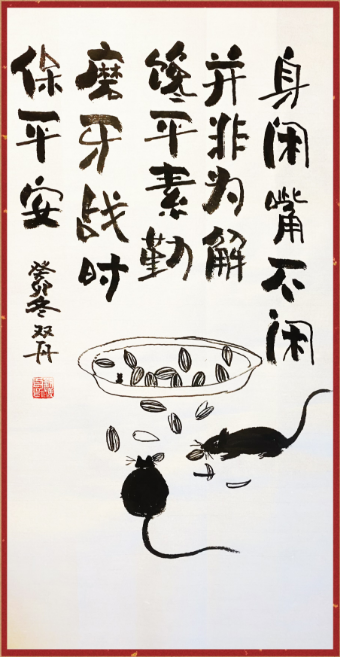 身闲嘴不闲
并非为解
馋平素勤
磨牙战时
保平安
癸卯冬双丹